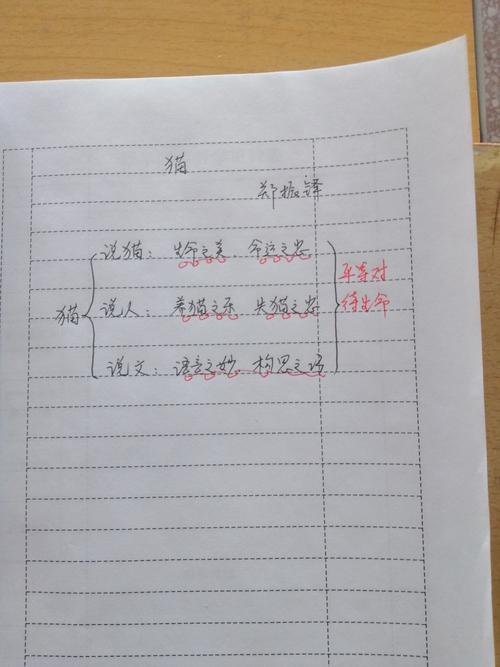 猫
郑振铎
说猫：生命之美 命运之悲
猫 说人：养猫之乐 失猫之悲
说文：语言之妙 构思之巧
平等对
待生命